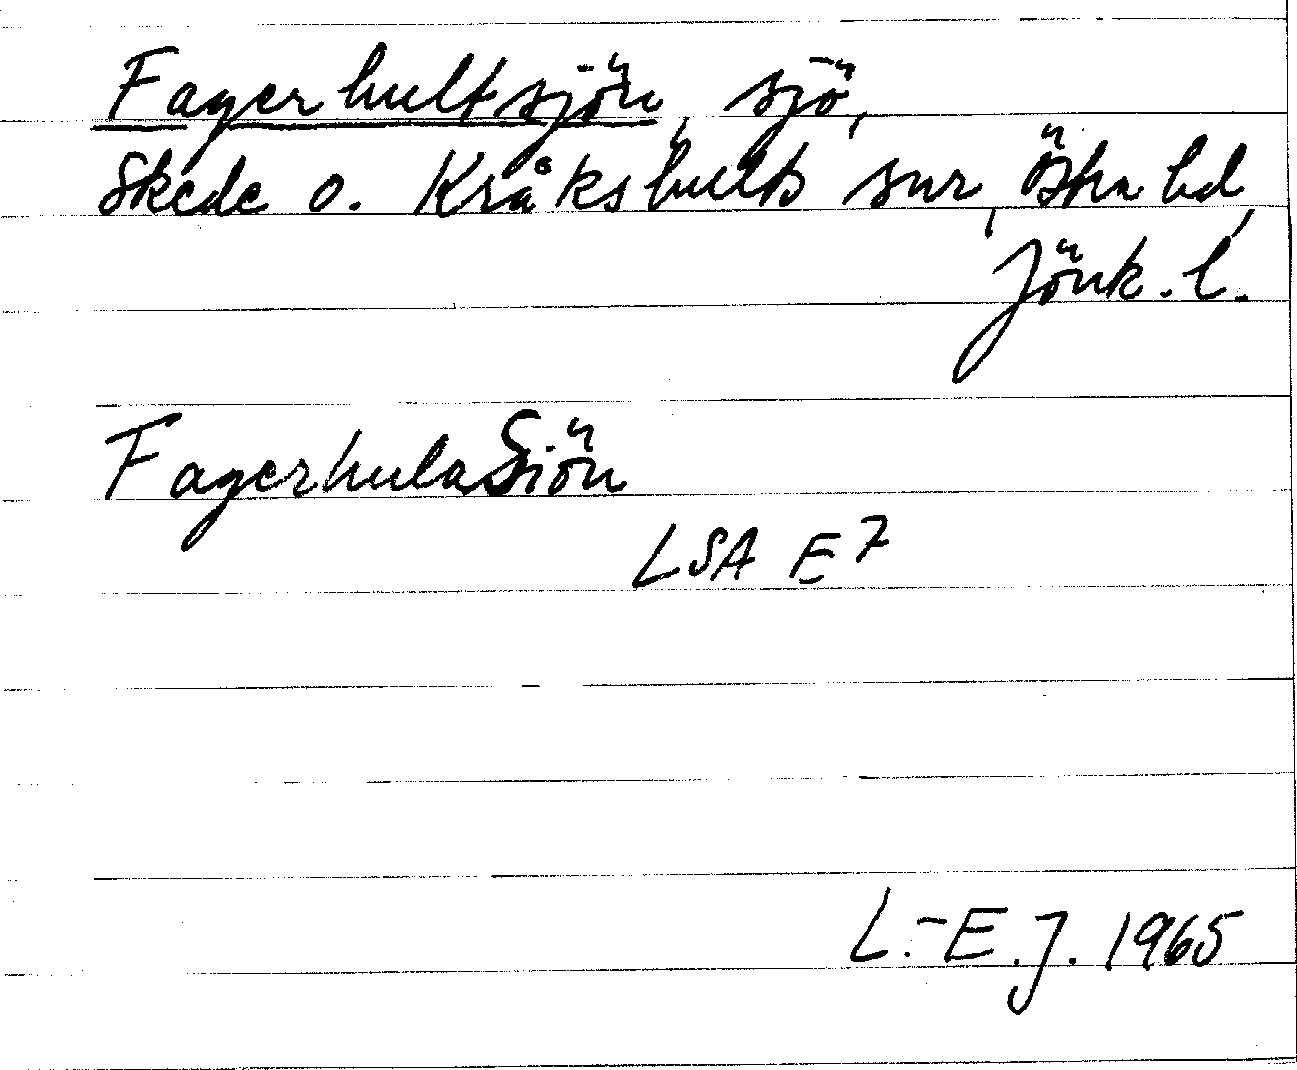 Fagerhultsjön, sjö,
Skede o. Kråkshults snr, Östra hd,
Jönk. l.
FagerhulaSiön
LSA E7
L.-E.J. 1965